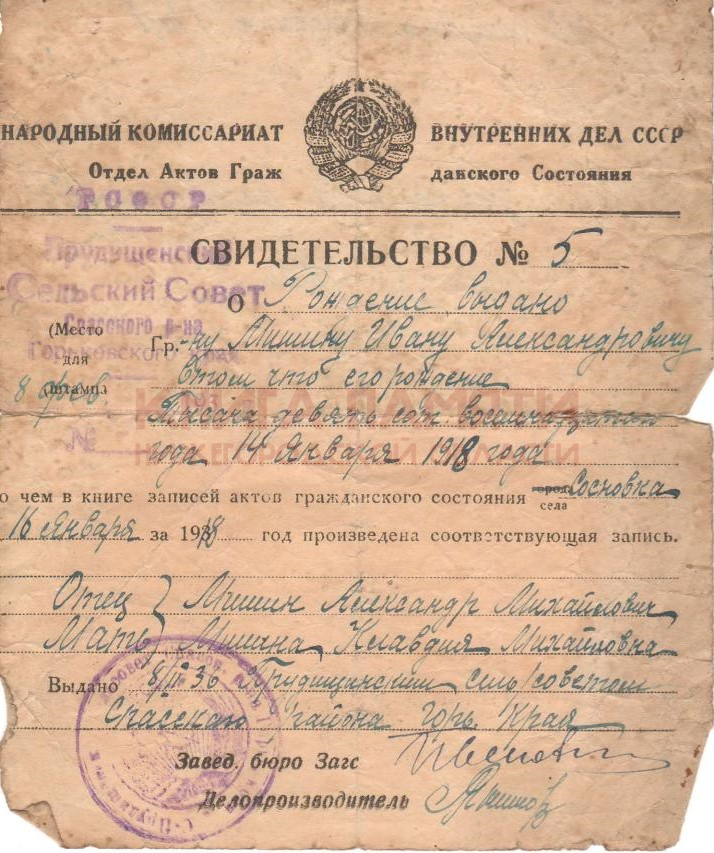 НАРОДНЫЙ КОМИССАРИАТ ВНУТРЕННИХ ДЕЛ СССР
Отдел Актов Граж данского Состояния
РСФСР
СВИДЕТЕЛЬСТВО № 5
Прудищенский
Сельский Совет
Спасского р-на
Горьковского Края
О Рождение выдано
(Место
для
штампа
Гр-ну Мишину Ивану Александровичу
8 фев.
В том что его рождение
КНИГА ПАМЯТИ
Тысяча девять сот
№
НИЖЕГОРОДСКОЙ ОБЛАСТИ
года 14 Января 1918 года
о чем в книге записей актов гражданского состояния города Сосновка
села
16 января за 1918 год произведена соответствующая запись.
Отец } Мишин Александр Михайлович
Мать } Мишина Клавдия Михайловна
Выдано 8/II 36 Прудищинским сель/советом
Спасскаю района Горь. Края
Завед. бюро Загс
Делопроизводитель